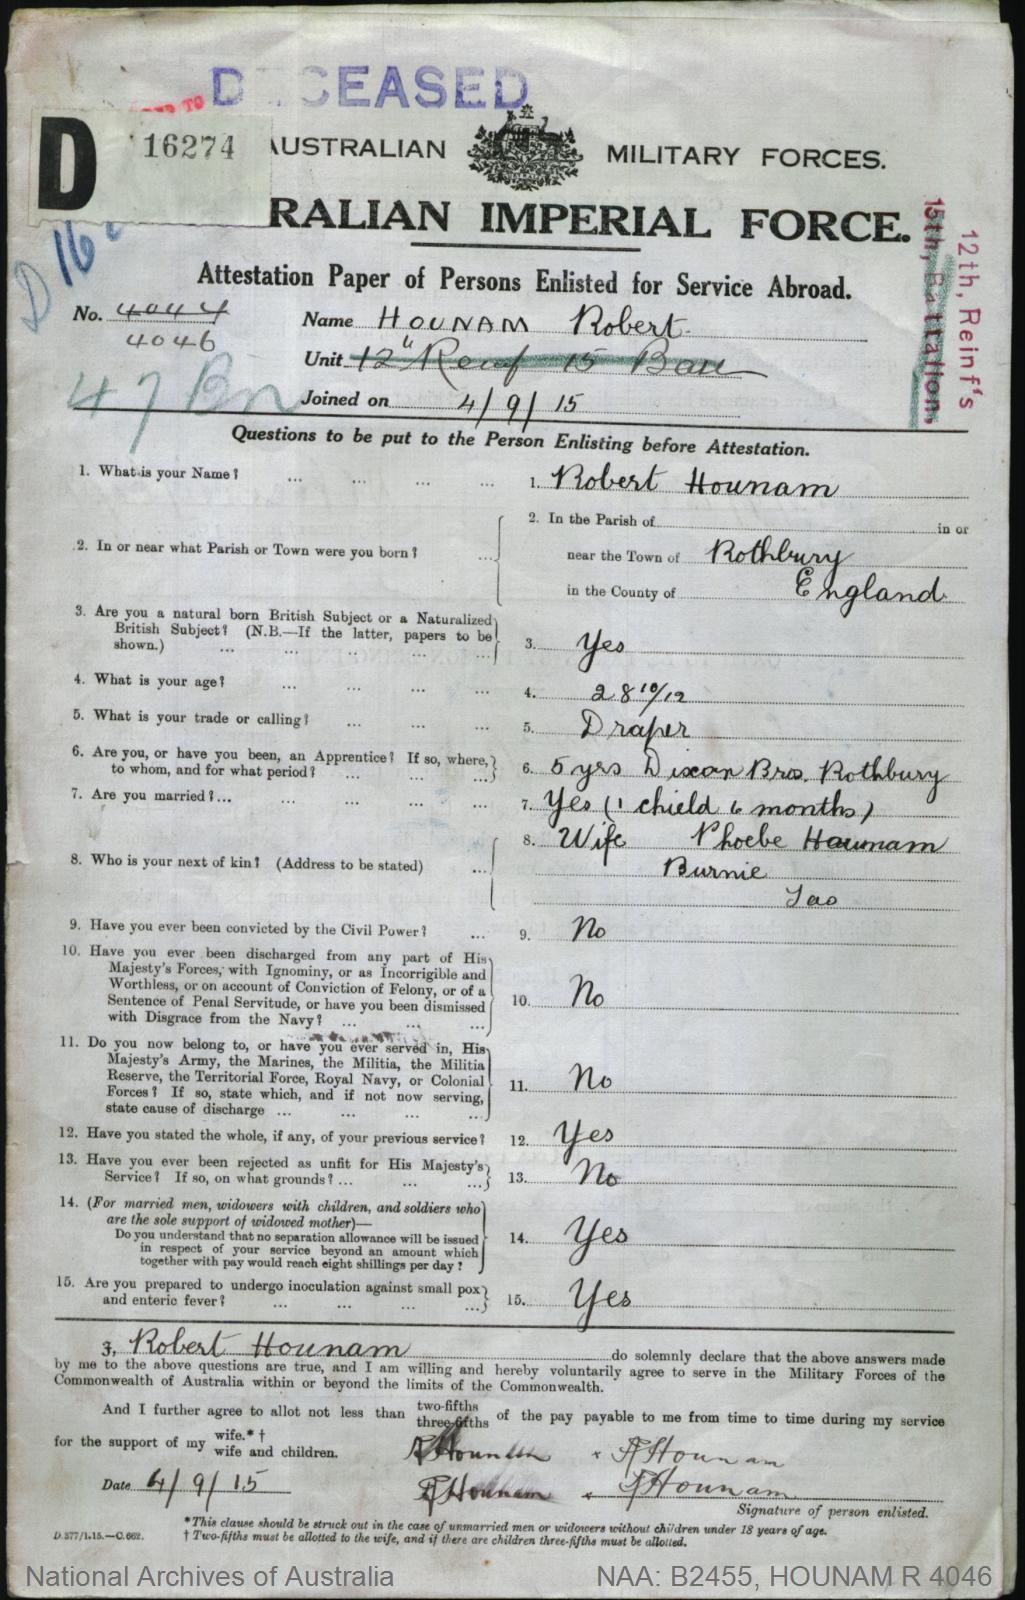 DECEASED
D 16274 AUSTRALIAN MILITARY FORCES.
RALIAN IMPERIAL FORCE.
D 16
15th, Battalion,
12th, Reinf's
Attestation Paper of Persons Enlisted for Service Abroad.
No. 4044 Name HOUNAM Robert
4046
Unit 12" Reinf 15 Batt
47 Bn
Joined on 4/9/15
Questions to be put to the Person Enlisting before Attestation.
1. What is your Name? ... ... ... ... 1. Robert Hounam
2. In the Parish of in or
2. In or near what Parish or Town were you born? ... near the Town of Rothbury
in the County of England
3. Are you a natural born British Subject or a Naturalized
British Subject? (N.B.—If the latter, papers to be
shown.) ... ... ... ... ... 3. Yes
4. What is your age? ... ... ... ... 4. 28 10/12
5. What is your trade or calling? ... ... ... 5. Draper
6. Are you, or have you been, an Apprentice? If so, where,
to whom, and for what period? ... ... ... 6. 5 yrs Dixon Bros. Rothbury
7. Are you married?... ... ... ... ... 7. Yes (1 chield 6 months)
8. Who is your next of kin? (Address to be stated) ... 8. Wife Phoebe Hounam
Burnie
Tas
9. Have you ever been convicted by the Civil Power? ... 9. No
10. Have you ever been discharged from any part of His
Majesty's Forces, with Ignominy, or as Incorrigible and
Worthless, or on account of Conviction of Felony, or of a
Sentence of Penal Servitude, or have you been dismissed
with Disgrace from the Navy? ... ... ... 10. No
11. Do you now belong to, or have you ever served in, His
Majesty's Army, the Marines, the Militia, the Militia
Reserve, the Territorial Force, Royal Navy, or Colonial
Forces? If so, state which, and if not now serving,
state cause of discharge ... ... ... ... 11. No
12. Have you stated the whole, if any, of your previous service? 12. Yes
13. Have you ever been rejected as unfit for His Majesty's
Service? If so, on what grounds? ... ... ... 13. No
14. (For married men, widowers with children, and soldiers who
are the sole support of widowed mother)—
Do you understand that no separation allowance will be issued
in respect of your service beyond an amount which
together with pay would reach eight shillings per day? 14. Yes
15. Are you prepared to undergo inoculation against small pox
and enteric fever? ... ... ... ... 15. Yes
I, Robert Hounam do solemnly declare that the above answers made
by me to the above questions are true, and I am willing and hereby voluntarily agree to serve in the Military Forces of the
Commonwealth of Australia within or beyond the limits of the Commonwealth.
And I further agree to allot not less than two-fifths three-fifths of the pay payable to me from time to time during my service
for the support of my wife.* † wife and children. R Hounam x R Hounam
Date 4/9/15 R Hounam x R Hounam
Signature of person enlisted.
*This clause should be struck out in the case of unmarried men or widowers without children under 18 years of age.
D.377/1.15.—C.662. † Two-fifths must be allotted to the wife, and if there are children three-fifths must be allotted.
National Archives of Australia NAA: B2455, HOUNAM R 4046